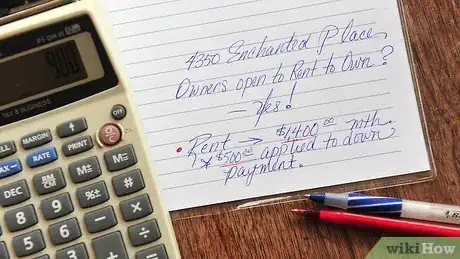 4350 Enchanted Place
Owners open to Rent to Own?
— Yes!
• Rent → $1400.00 mth.
* $500.00 applied to down
payment.
P1-DH III
900
TAX & BUSINESS
OFF
MARGIN
PRINT
C·CE
TAX–
RATE
M=
DEC
%±
M=
7
8
9
÷
4
5
6
wikiHow